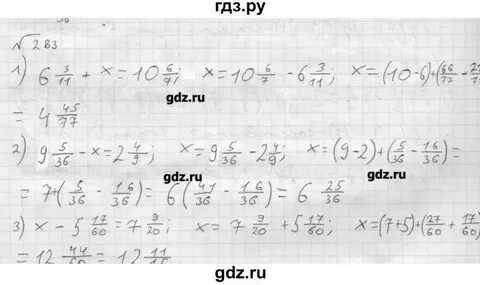 гдз.ру
√ 283
1) 6 3/11 + x = 10 6/7; x = 10 6/7 - 6 3/11; x = (10-6)+(66/77 - 21
gdz.ru gdz.ru
= 4 45/77
2) 9 5/36 - x = 2 4/9; x = 9 5/36 - 2 4/9; x = (9-2)+(5/36 - 16/36) =
gdz.ru
= 7+(5/36 - 16/36) = 6(41/36 - 16/36) = 6 25/36
gdz.ru
3) x - 5 17/60 = 7 9/20; x = 7 9/20 + 5 17/60; x = (7+5)+(27/60 + 17/60)
gdz.ru
= 12 44/60 = 12 11/15
gdz.ru